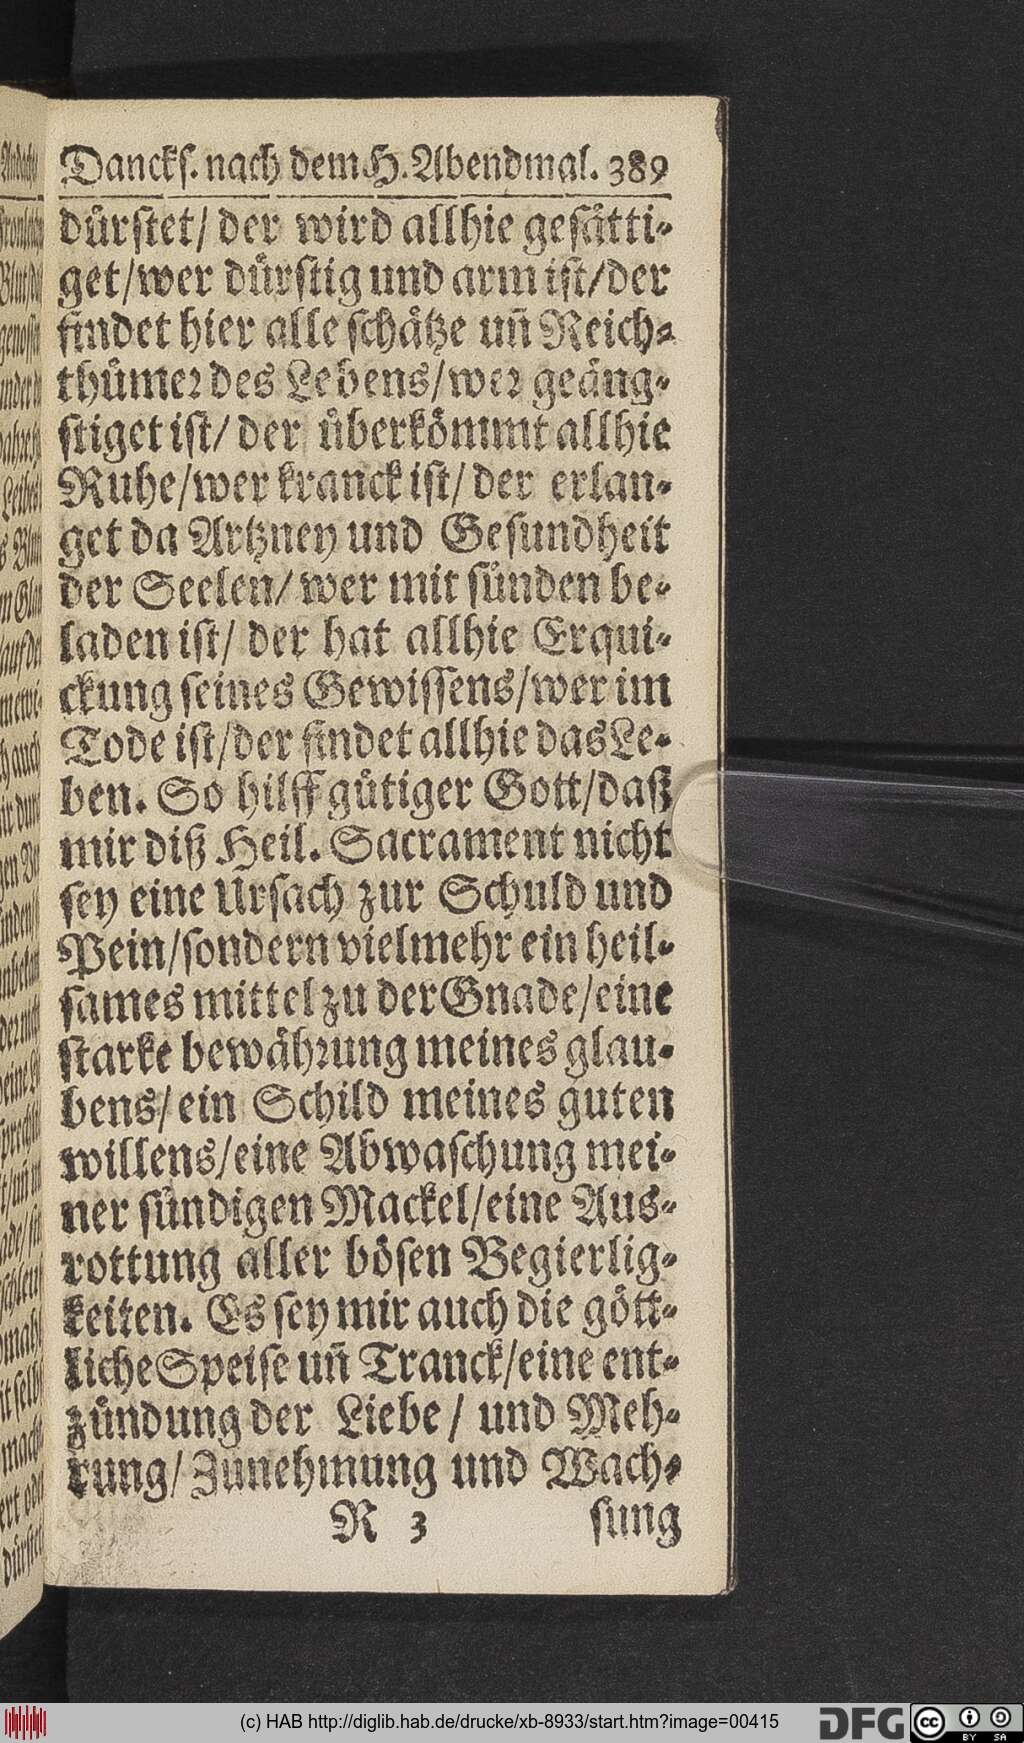 Dancks. nach dem H. Abendmal. 389
dürstet/ der wird allhie gesätti-
get/wer dürstig und arm ist/der
findet hier alle schätze uñ Reich-
thümer des Lebens/wer geäng-
stiget ist/ der überkömmt allhie
Ruhe/wer kranck ist/ der erlan-
get da Artzney und Gesundheit
der Seelen/ wer mit sünden be-
laden ist/ der hat allhie Erqui-
ckung seines Gewissens/wer im
Tode ist/der findet allhie das Le-
ben. So hilff gütiger Gott/daß
mir diß Heil. Sacrament nicht
sey eine Ursach zur Schuld und
Pein/sondern vielmehr ein heil-
sames mittel zu der Gnade/eine
starke bewährung meines glau-
bens/ ein Schild meines guten
willens/eine Abwaschung mei-
ner sündigen Mackel/eine Aus-
rottung aller bösen Begierlig-
keiten. Es sey mir auch die gött-
liche Speise uñ Tranck/eine ent-
zündung der Liebe / und Meh-
rung/ Zunehmung und Wach-
R 3 sung
(c) HAB http://diglib.hab.de/drucke/xb-8933/start.htm?image=00415
DFG cc BY SA